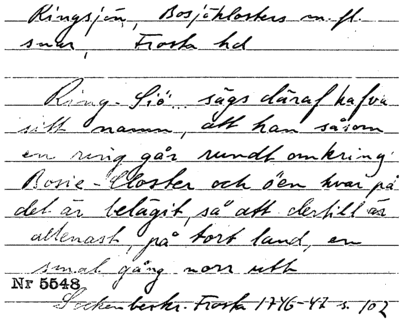 Ringsjön, Bosjöklosters m. fl.
snar, Frosta hd
Ring-Siö.. sägs däraf hafva
sitt namn, att han såsom
en ring går rundt omkring
Bosie-Closter och öen hvar på
det är belägit, så att dertill är
allenast, på tort land, en
smal gång norr utt
Nr 5548
Sockenbeskr. Frosta 1746-47 s. 102